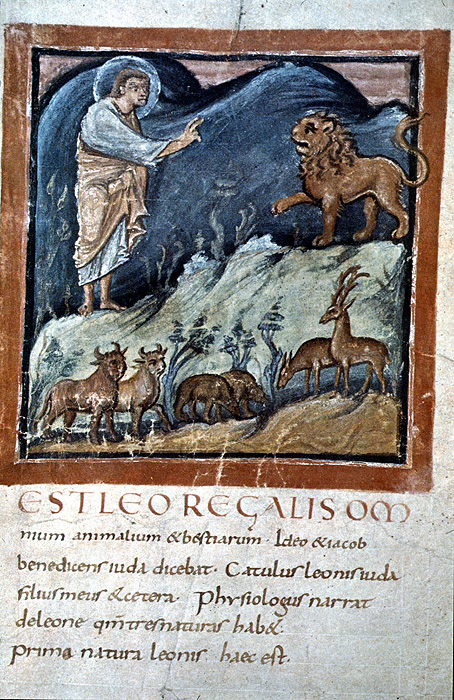 EST LEO REGALIS OM
nium animalium & bestiarum · Ideo & iacob
benedicens iuda dicebat · Catulus leonis iuda
filius meus & cetera · Physiologus narrat
de leone qm tres naturas hab&·
Prima natura leonis haec est·